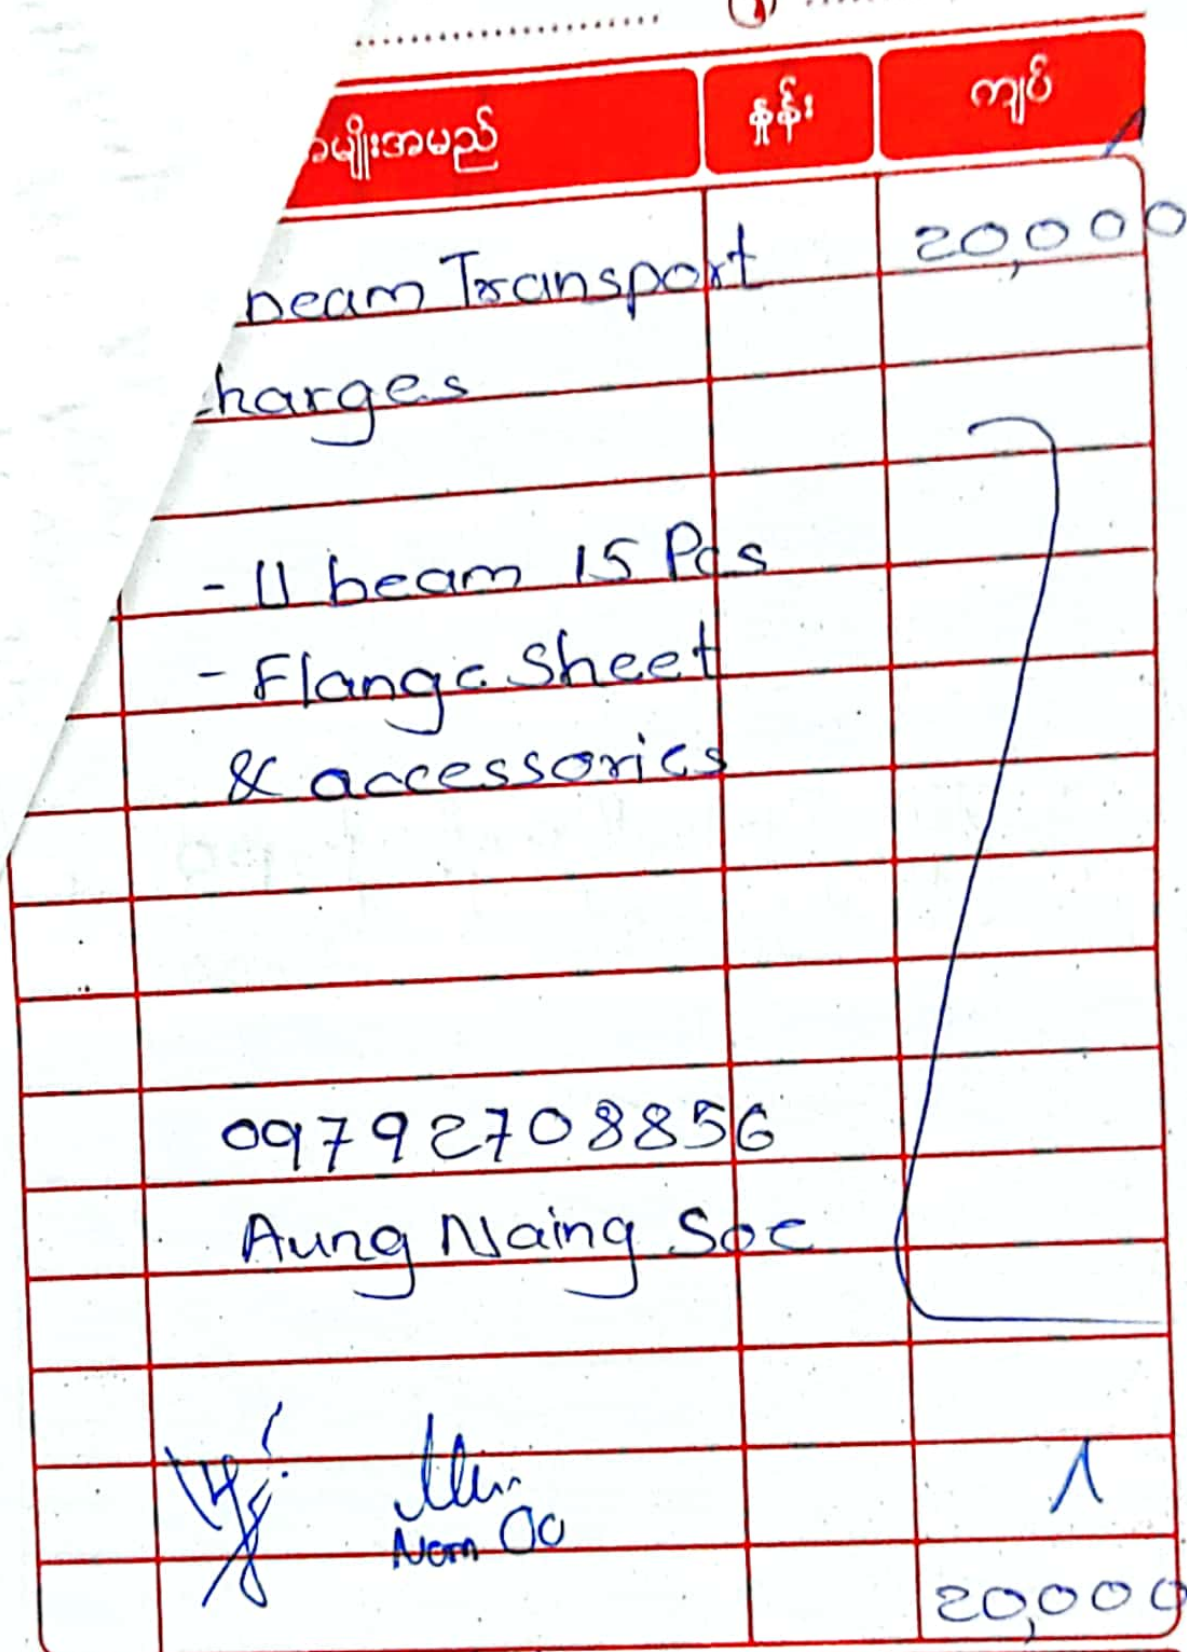 အမျိုးအမည် နှုန်း ကျပ်
beam Transport 20,000
charges
- U beam 15 Pcs
- Flange Sheet
& accessories
09792708856
Aung Naing Soe
Nom Oo
20,000